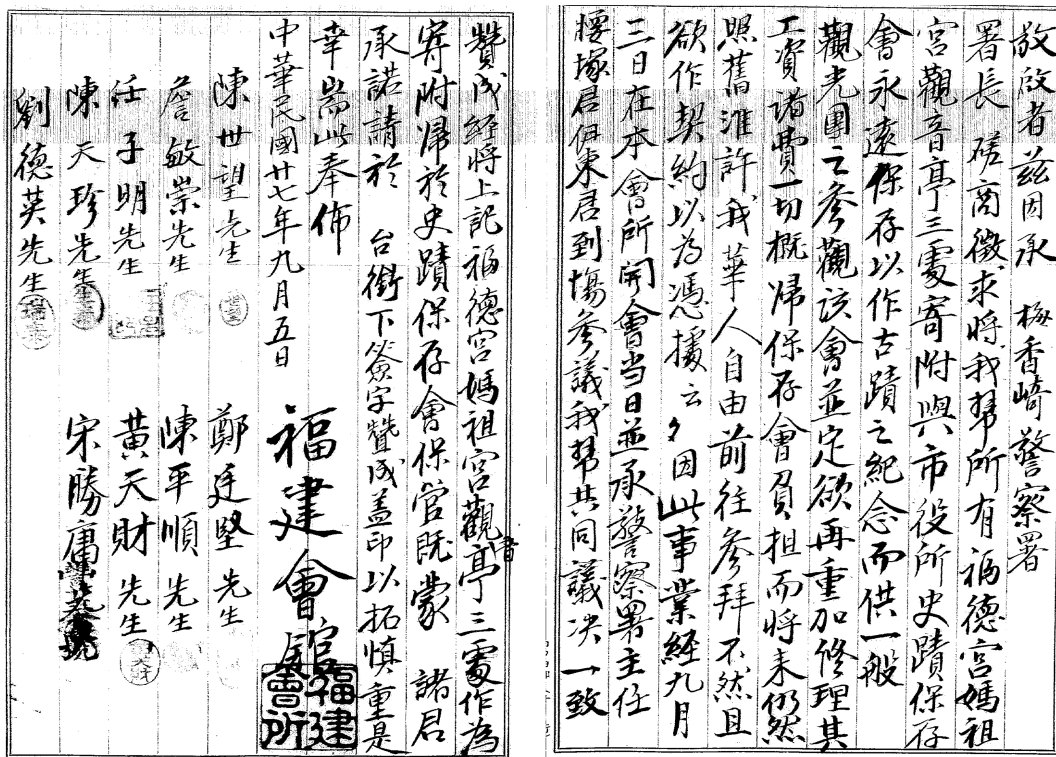 敬啟者茲因承　梅香崎警察署
署長　磋商徵求將我幫所有福德宮媽祖
宮觀音亭三處寄附與市役所史蹟保存
會永遠保存以作古蹟之紀念而供一般
觀光團之參觀該會並定欲再重加修理其
工資諸費一切概歸保存會負担而將來仍然
照舊准許我華人自由前往參拜不然且
欲作契約以為憑據云々因此事業經九月
三日在本會所開會当日並承警察署主任
塚君俱來居到塲參議我幫共同議决一致
贊成經將上記福德宮媽祖宮觀音亭三處作為
寄附帰於史蹟保存會保管既蒙　諸君
承諾請於　台銜下簽字贊成盖印以拓慎重是
幸耑此奉佈
中華民國廿七年九月五日
福建會館
福建會所
陳世望先生
鄭廷堅先生
詹敏崇先生
陳平順先生
任子明先生
黃天財先生
陳天珍先生
宋勝庸
劉德英先生